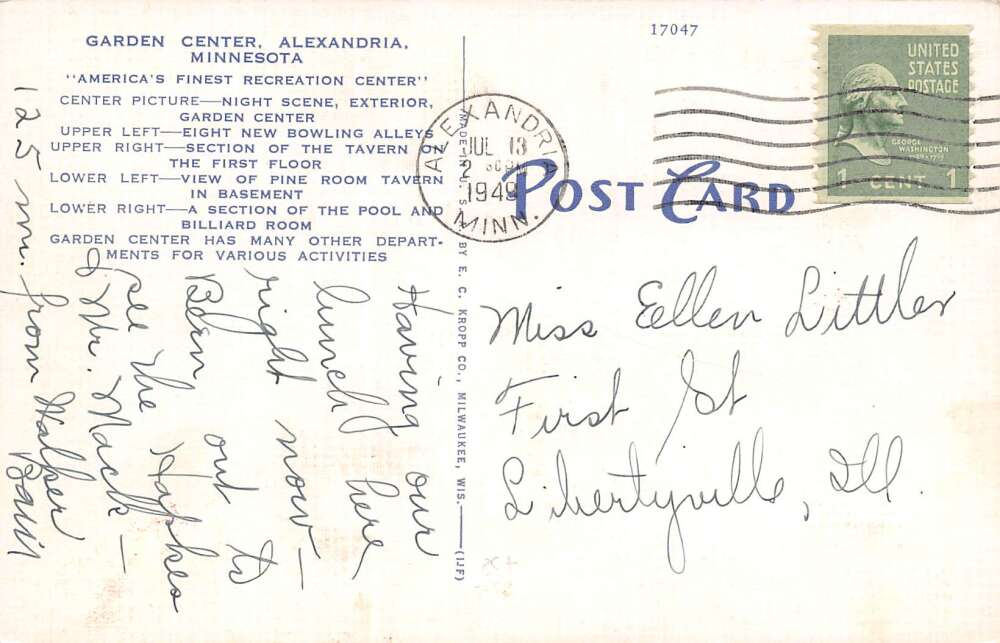 GARDEN CENTER, ALEXANDRIA,
MINNESOTA
"AMERICA'S FINEST RECREATION CENTER"
CENTER PICTURE—NIGHT SCENE, EXTERIOR,
GARDEN CENTER
UPPER LEFT—EIGHT NEW BOWLING ALLEYS
UPPER RIGHT—SECTION OF THE TAVERN ON
THE FIRST FLOOR
LOWER LEFT—VIEW OF PINE ROOM TAVERN
IN BASEMENT
LOWER RIGHT—A SECTION OF THE POOL AND
BILLIARD ROOM
GARDEN CENTER HAS MANY OTHER DEPART-
MENTS FOR VARIOUS ACTIVITIES
Having our
lunch here
right now—
Been out to
see the
& Mr. Mack—
125 mi. from Walker
MADE IN U. S. A. BY E. C. KROPP CO., MILWAUKEE, WIS.
(IJF)
17047
ALEXANDRIA
JUL 13
2 30 PM
1949
MINN.
POST CARD
UNITED
STATES
POSTAGE
GEORGE
WASHINGTON
1 CENT 1
Miss Ellen Littler
First St
Libertyville, Ill.